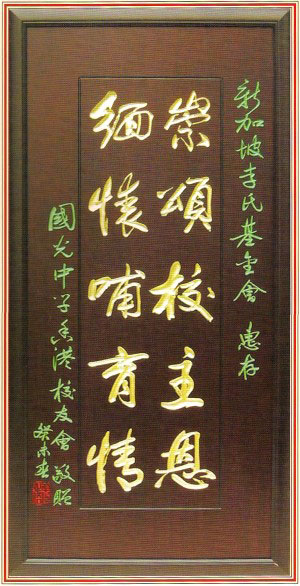 新加坡李氏基金會 惠存
崇頌校主恩
緬懷哺育情
國光中学香港校友會敬贈
癸未春